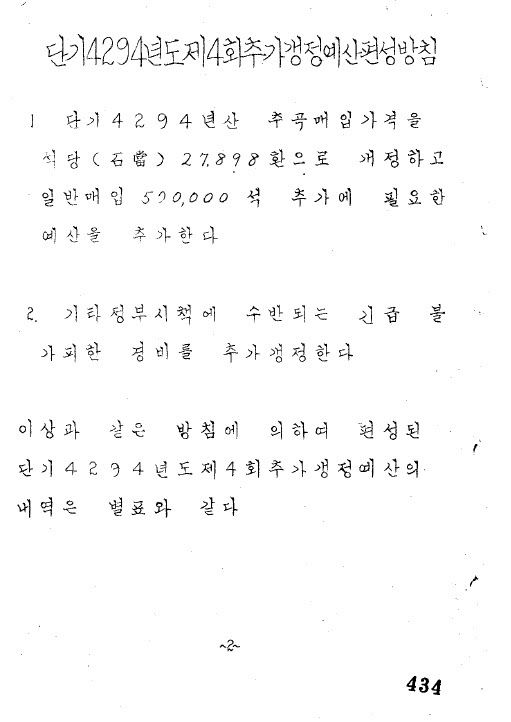 단기4294년도제4회추가갱정예산편성방침
1 단기4294년산 추곡매입가격을
석당(石當) 27,898환으로 개정하고
일반매입 500,000석 추가에 필요한
예산을 추가한다
2. 기타정부시책에 수반되는 긴급 불
가피한 경비를 추가갱정한다
이상과 같은 방침에 의하여 편성된
단기4294년도제4회추가갱정예산의
내역은 별표와 같다
~2~
434